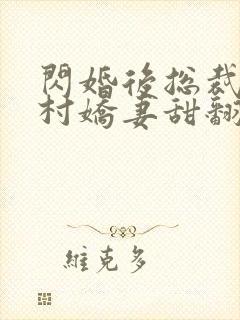 閃婚後總裁
村嬌妻甜翻
維克多